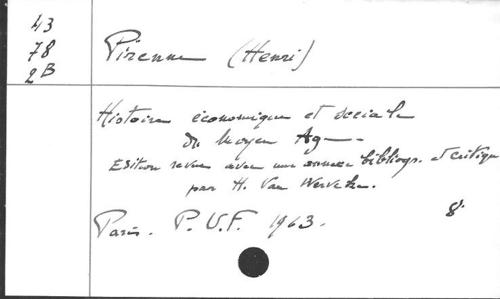 43
78
2B
Pirenne (Henri)
Histoire économique et sociale
du Moyen Age
Edition revue avec une annexe bibliogr. et critique
par H. Van Werveke.
Paris. P.U.F. 1963.
8°